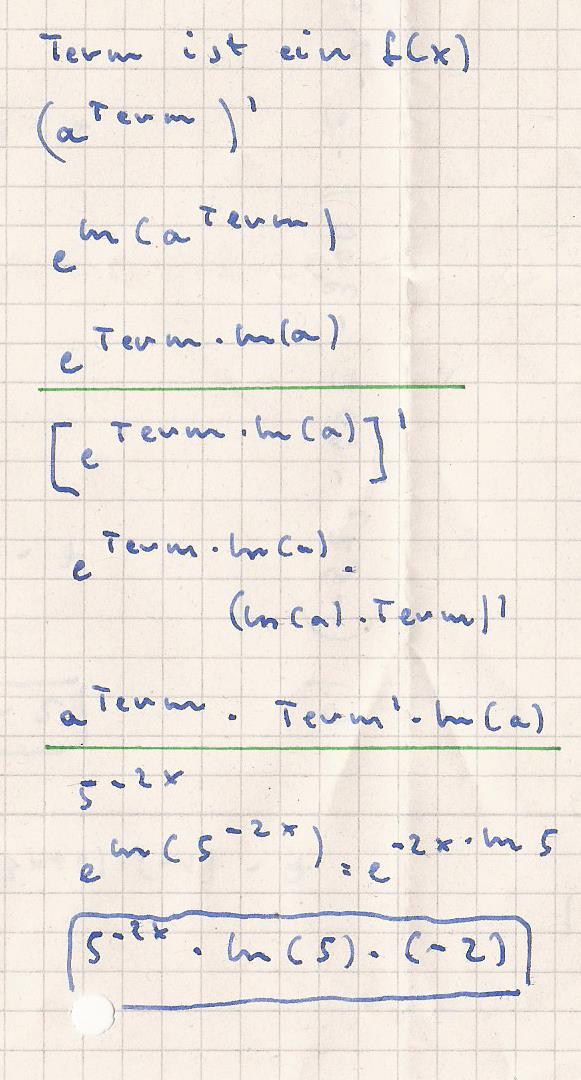 Term ist ein f(x)
(a^Term)'
e^ln(a^Term)
e^Term·ln(a)
[e^Term·ln(a)]'
e^Term·ln(a) ·
(ln(a)·Term)'
a^Term · Term'·ln(a)
5^-2x
e^ln(5^-2x) = e^-2x·ln 5
5^-2x · ln(5)·(-2)